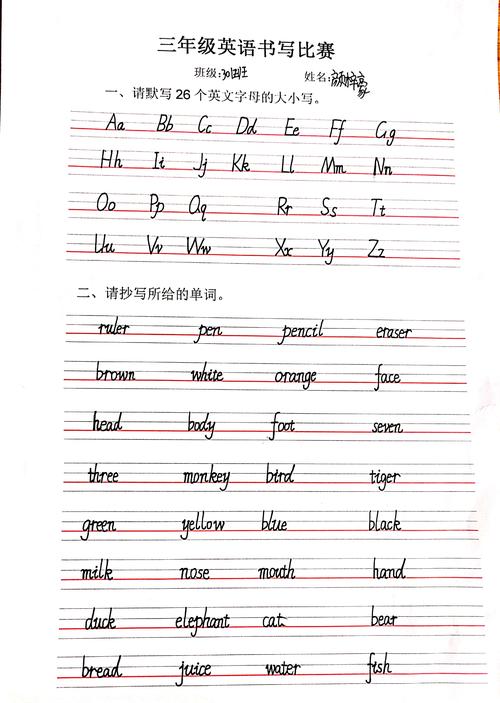 三年级英语书写比赛
班级:301班 姓名:
一、请默写26个英文字母的大小写。
Aa Bb Cc Dd Ee Ff Gg
Hh Ii Jj Kk Ll Mm Nn
Oo Pp Qq Rr Ss Tt
Uu Vv Ww Xx Yy Zz
二、请抄写所给的单词。
ruler pen pencil eraser
brown white orange face
head body foot seven
three monkey bird tiger
green yellow blue black
milk nose mouth hand
duck elephant cat bear
bread juice water fish